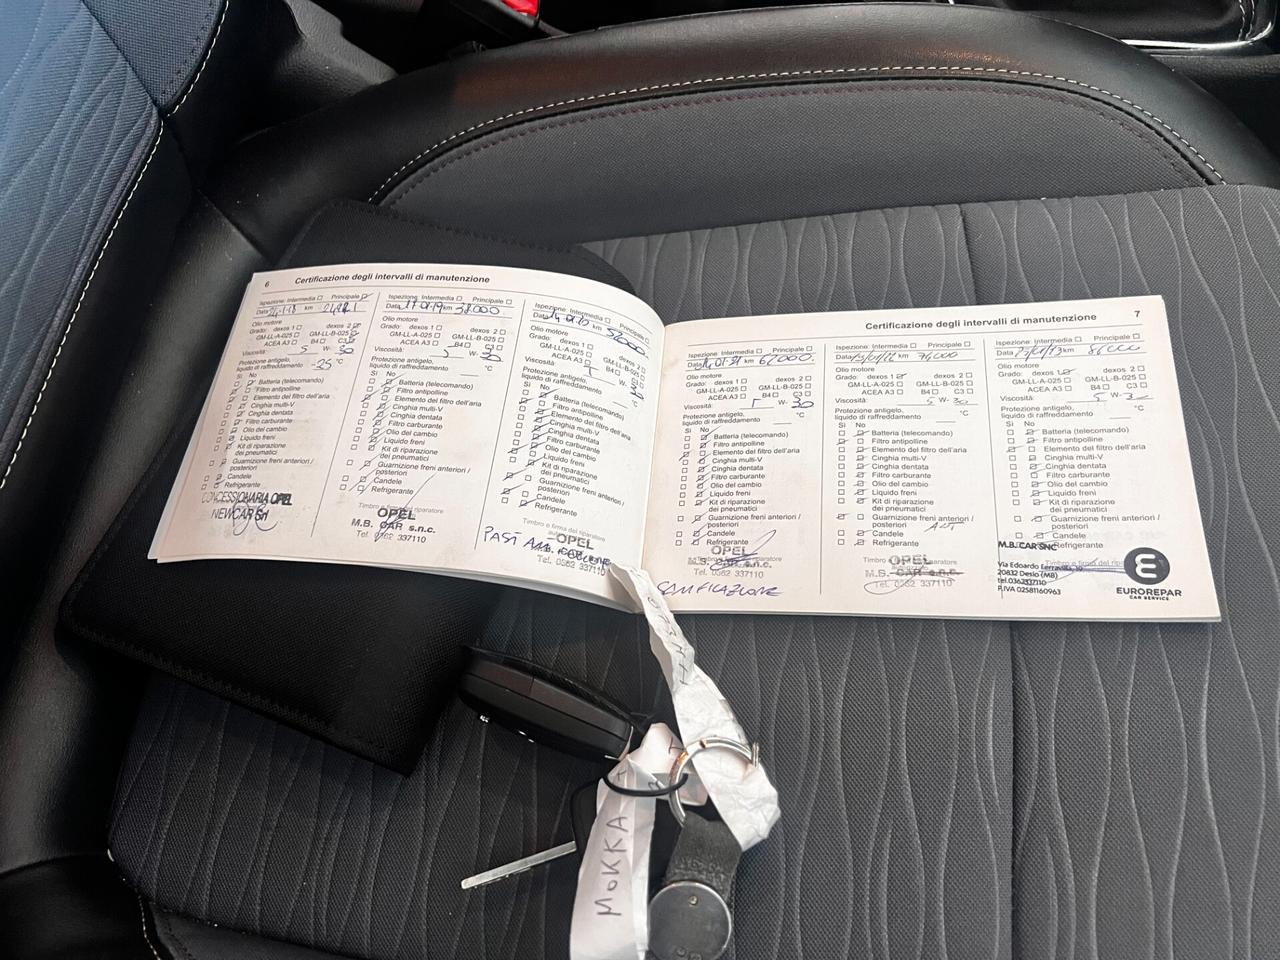 6 Certificazione degli intervalli di manutenzione
Ispezione: Intermedia Principale
Data km
Olio motore
Grado: dexos 1 dexos 2
GM-LL-A-025 GM-LL-B-025
ACEA A3 B4 C3
Viscosità: 5 W- 30
Protezione antigelo,
liquido di raffreddamento -25 °C
Sì No
Batteria (telecomando)
Filtro antipolline
Elemento del filtro dell'aria
Cinghia multi-V
Cinghia dentata
Filtro carburante
Olio del cambio
Liquido freni
Kit di riparazione
dei pneumatici
Guarnizione freni anteriori /
posteriori
Candele
Refrigerante
CONCESSIONARIA OPEL
NEWCAR Srl
Ispezione: Intermedia Principale
Data km 38.000
Olio motore
Grado: dexos 1 dexos 2
GM-LL-A-025 GM-LL-B-025
ACEA A3 B4 C3
Viscosità: W- 30
Protezione antigelo,
liquido di raffreddamento °C
Sì No
Batteria (telecomando)
Filtro antipolline
Elemento del filtro dell'aria
Cinghia multi-V
Cinghia dentata
Filtro carburante
Olio del cambio
Liquido freni
Kit di riparazione
dei pneumatici
Guarnizione freni anteriori /
posteriori
Candele
Refrigerante
OPEL
M.B. CAR s.n.c.
Tel. 0362 337110
Ispezione: Intermedia Principale
Data km 52000
Olio motore
Grado: dexos 1 dexos 2
GM-LL-A-025 GM-LL-B-025
ACEA A3 B4 C3
Viscosità: W-
Protezione antigelo,
liquido di raffreddamento °C
Sì No
Batteria (telecomando)
Filtro antipolline
Elemento del filtro dell'aria
Cinghia multi-V
Cinghia dentata
Filtro carburante
Olio del cambio
Liquido freni
Kit di riparazione
dei pneumatici
Guarnizione freni anteriori /
posteriori
Candele
Refrigerante
Timbro e firma del riparatore
OPEL
M.B. CAR s.n.c.
Tel. 0362 337110
Certificazione degli intervalli di manutenzione 7
Ispezione: Intermedia Principale
Data km 67000
Olio motore
Grado: dexos 1 dexos 2
GM-LL-A-025 GM-LL-B-025
ACEA A3 B4 C3
Viscosità: W- 30
Protezione antigelo,
liquido di raffreddamento °C
Sì No
Batteria (telecomando)
Filtro antipolline
Elemento del filtro dell'aria
Cinghia multi-V
Cinghia dentata
Filtro carburante
Olio del cambio
Liquido freni
Kit di riparazione
dei pneumatici
Guarnizione freni anteriori /
posteriori
Candele
Refrigerante
OPEL
M.B. CAR s.n.c.
Tel. 0362 337110
Ispezione: Intermedia Principale
Data km 76000
Olio motore
Grado: dexos 1 dexos 2
GM-LL-A-025 GM-LL-B-025
ACEA A3 B4 C3
Viscosità: 5 W- 30
Protezione antigelo,
liquido di raffreddamento °C
Sì No
Batteria (telecomando)
Filtro antipolline
Elemento del filtro dell'aria
Cinghia multi-V
Cinghia dentata
Filtro carburante
Olio del cambio
Liquido freni
Kit di riparazione
dei pneumatici
Guarnizione freni anteriori /
posteriori ANT
Candele
Refrigerante
Timbro riparatore
OPEL
M.B. CAR s.n.c.
Tel. 0362 337110
Ispezione: Intermedia Principale
Data km 86000
Olio motore
Grado: dexos 1 dexos 2
GM-LL-A-025 GM-LL-B-025
ACEA A3 B4 C3
Viscosità: 5 W-
Protezione antigelo,
liquido di raffreddamento °C
Sì No
Batteria (telecomando)
Filtro antipolline
Elemento del filtro dell'aria
Cinghia multi-V
Cinghia dentata
Filtro carburante
Olio del cambio
Liquido freni
Kit di riparazione
dei pneumatici
Guarnizione freni anteriori /
posteriori
Candele
Refrigerante
M.B. CAR SNC
Via Edoardo Lerravilla 19
20832 Desio (MB)
tel.0362337110
P.IVA 02581160963
EUROREPAR
CAR SERVICE
MOKKA